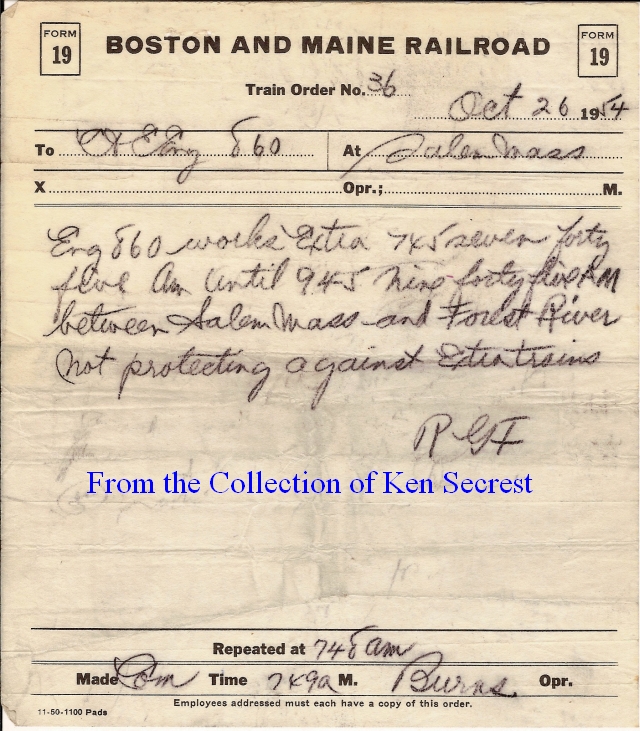 FORM 19
BOSTON AND MAINE RAILROAD
FORM 19
Train Order No. 36
Oct 26 1954
To C&E Eng 860 At Salem Mass
X Opr.; M.
Eng 860 works Extra 745 seven forty
five Am Until 945 Nine forty five AM
between Salem Mass and Forest River
Not protecting against Extra trains
R G F
From the Collection of Ken Secrest
Repeated at 748 am
Made Com Time 749a M. Burns Opr.
Employees addressed must each have a copy of this order.
11-50-1100 Pads